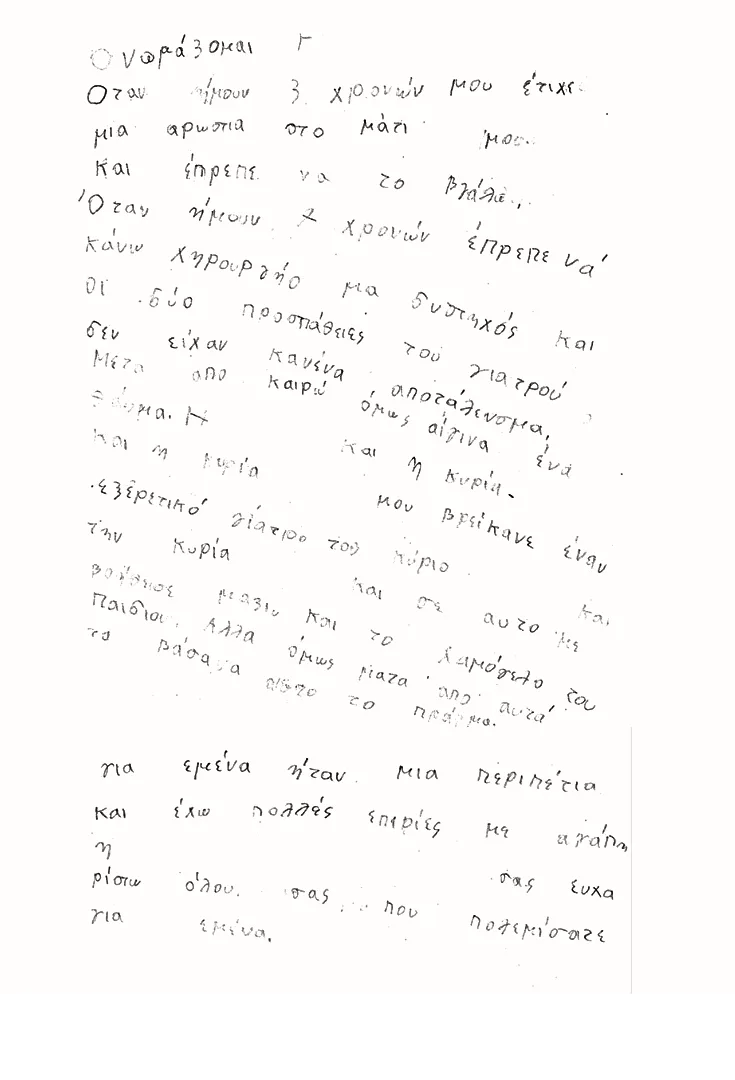 Ονωμάζομαι Γ
Οταν ήμουν 3 χρονών μου έτιχε
μια αρωστια στο μάτι μου.
και έπρεπε να το βγάλω.
Όταν ήμουν 7 χρονών έπρεπε να
κάνω χηρουργήο μα δυστηχός και
οι δύο προσπάθειες του γιατρού
δεν είχαν κανένα αποτάλενσμα,
Μετα απο καιρώ όμως αίγινα ένα
θάυμα. Η και η κυρία
και η κυρία μου βρείκανε έναν
εξερετικό γίατρο τον κύριο και
την κυρία και σε αυτο με
βοήθησε μαζιυ και το χαμόγελο του
Παιδιου. Αλλα όμως ματα απο αυτά
τα βάσανα αυτο το πράγμα.
για εμένα ήταν μια περιπέτια
και έχω πολλές επιρίες με αγάπη
η σας ευχα
ρίστω όλου. σας που πολεμίσατε
για εμένα.